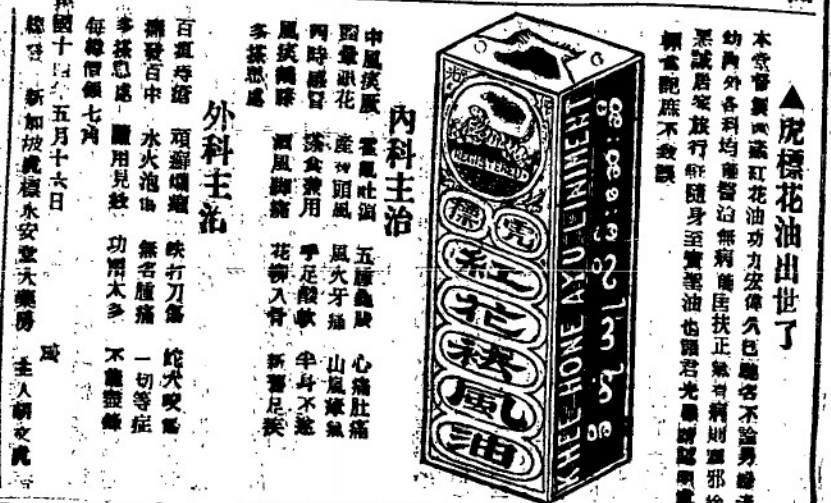 ▲虎標花油出世了
本堂督製 藏紅花油功力宏偉久已馳名不論男婦
幼內外各科均 醫治無病能匡扶正氣有病則 邪
誠居家旅行 隨身至寶聖油也 君光顧請認明
標 庶不致誤
KHEE HONE AYU LINIMENT
REGISTERED
虎標
紅花祛風油
內科主治
中風痰厥 霍亂吐瀉 心痛肚痛
眼花 產 頭風 風火牙痛 山嵐瘴氣
四時感冒 茶食兼用 手足酸軟 半身不遂
風痰 酒風腳痛 花柳入骨
多搽患處
外科主治
百 疳瘡 頑癬爛瘡 跌打刀傷 蛇犬咬傷
百中 水火泡傷 無名腫痛 一切等症
多搽患處 用見效 功用太多 不能盡錄
每樽價銀七角
民國十 五月十六日
總發 新加坡虎標永安堂大藥房 主人胡文虎